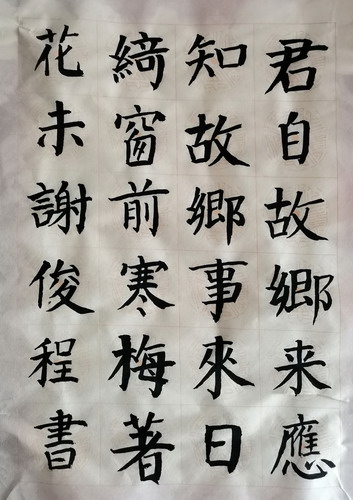 君自故鄉来應
知故鄉事來日
綺窗前寒梅著
花未謝俊程書